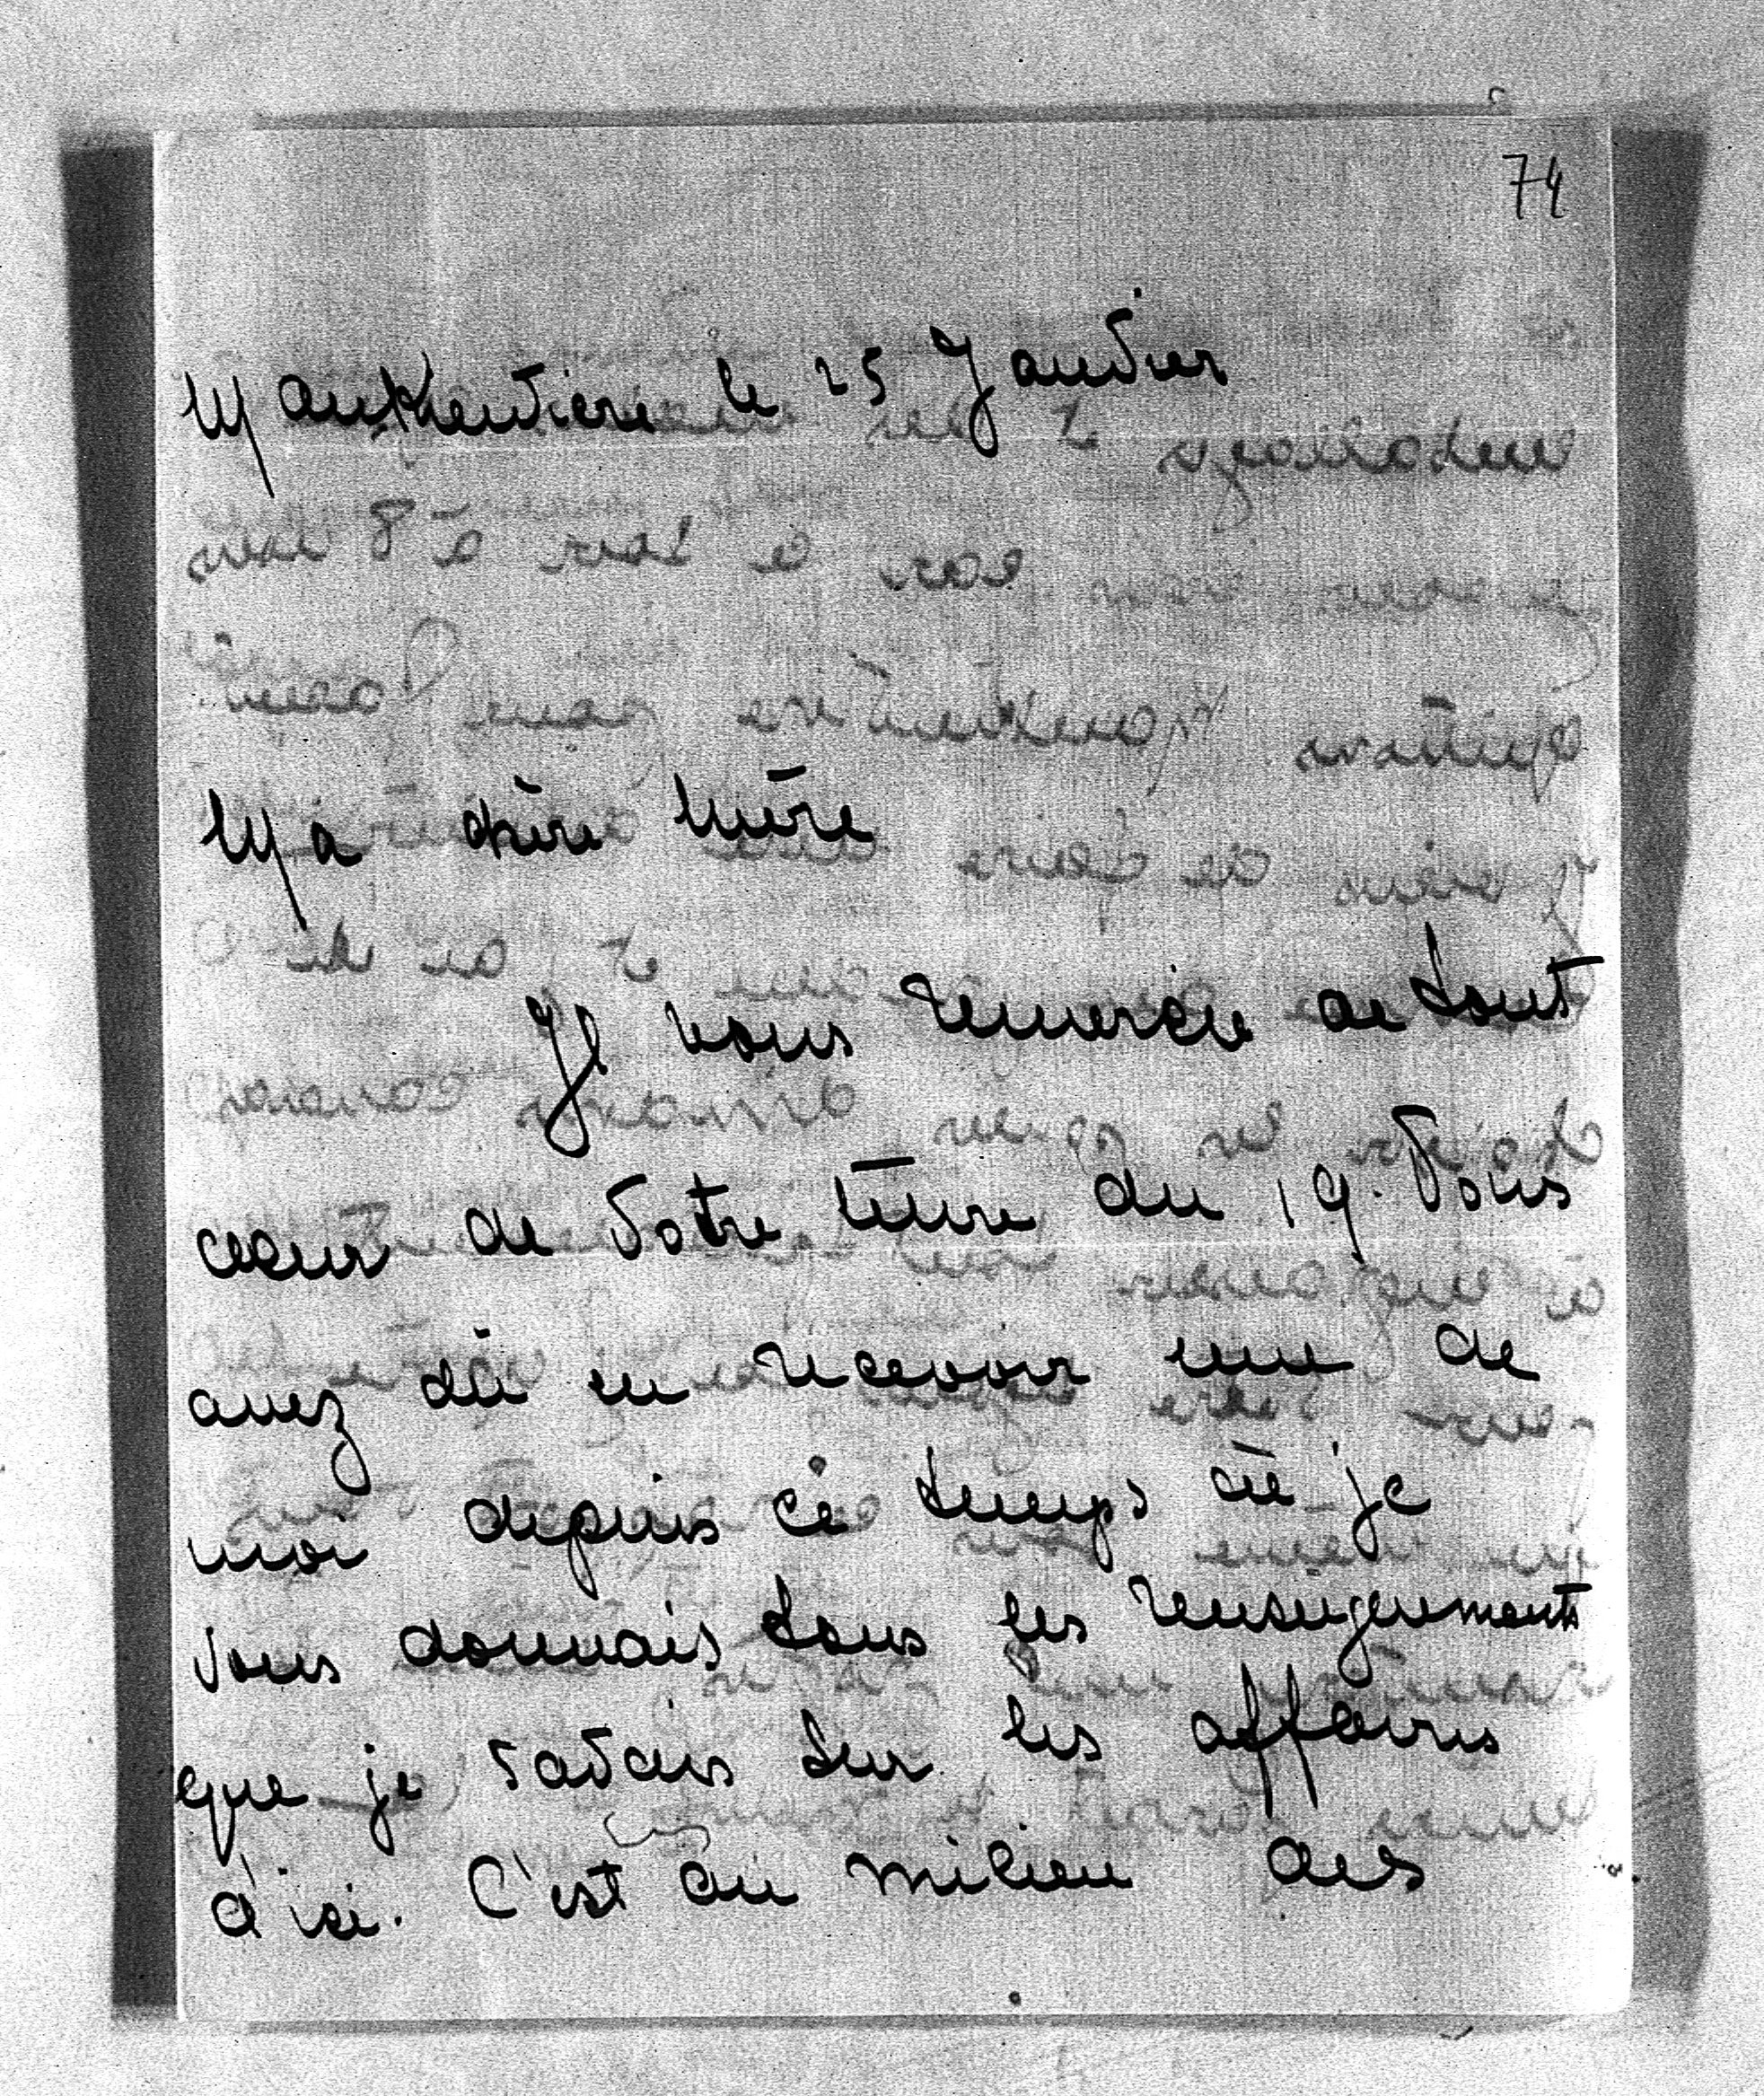 74
le 25 Janvier
Ma chère mère
Je vous remercie de tout
cœur de votre lettre du 19. Vous
avez dû en recevoir une de
moi depuis ce temps où je
vous donnais tous les renseignements
que je savais sur les affaires
d'ici. C'est au milieu des